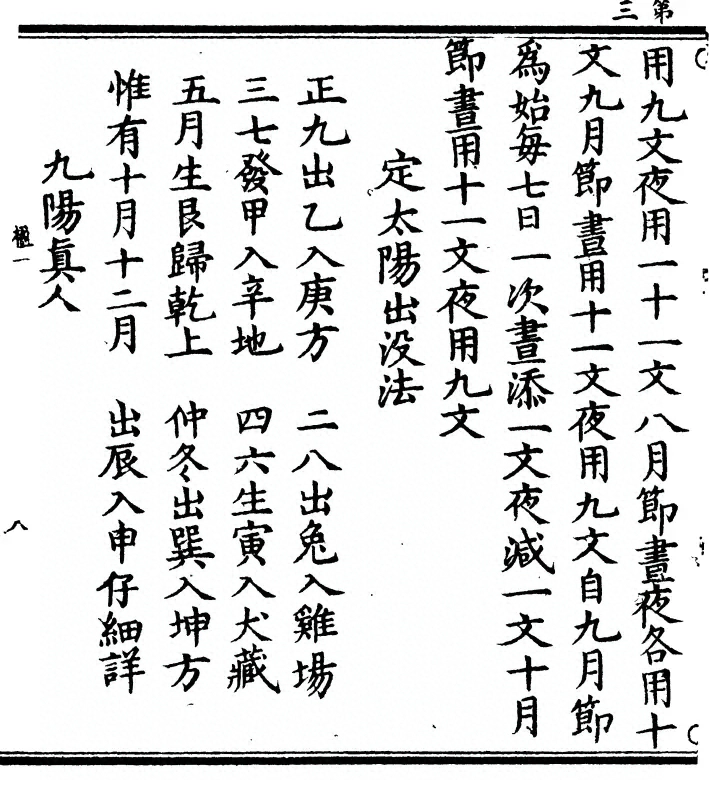 第三
用九文夜用一十一文八月節晝夜各用十
文九月節晝用十一文夜用九文自九月節
為始每七日一次晝添一文夜減一文十月
節晝用十一文夜用九文
定太陽出没法
正九出乙入庚方 二八出兔入雞場
三七發甲入辛地 四六生寅入犬藏
五月生艮歸乾上 仲冬出巽入坤方
惟有十月十二月 出辰入申仔細詳
九陽真人
極一
八